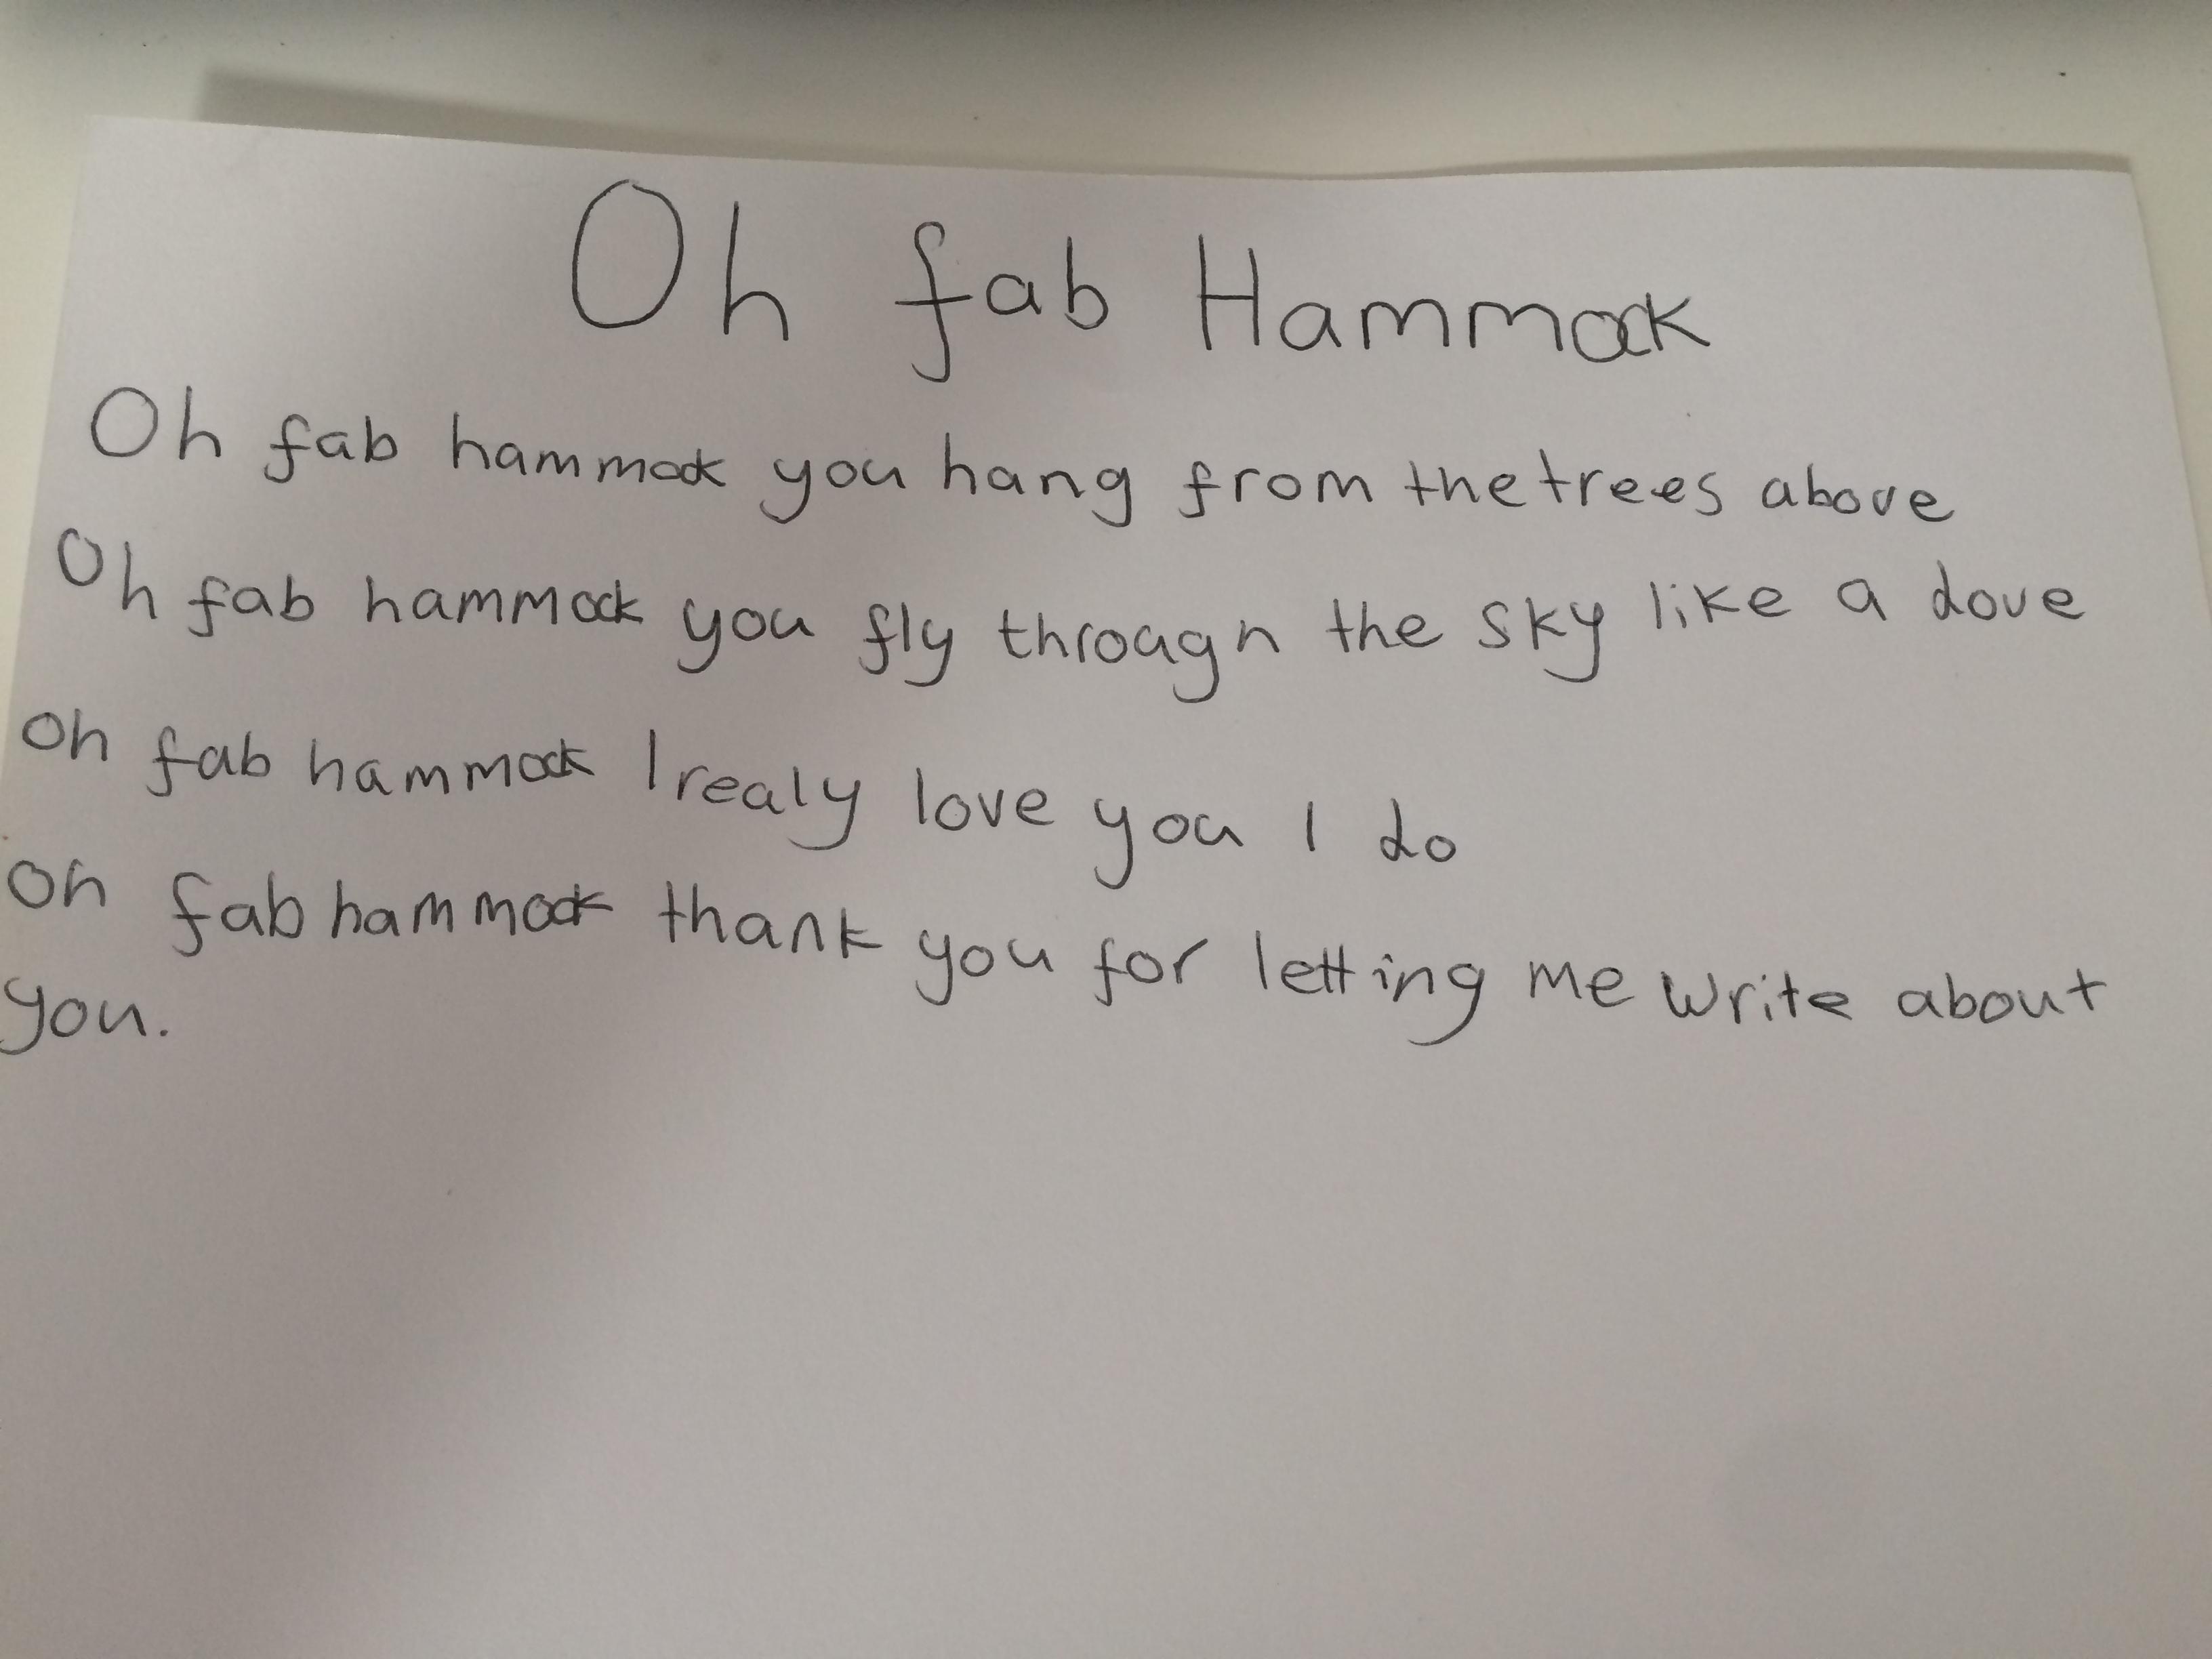 Oh fab Hammock
Oh fab hammock you hang from the trees above
Oh fab hammock you fly through the sky like a dove
oh fab hammock I realy love you I do
oh fab hammock thank you for letting me write about
you.